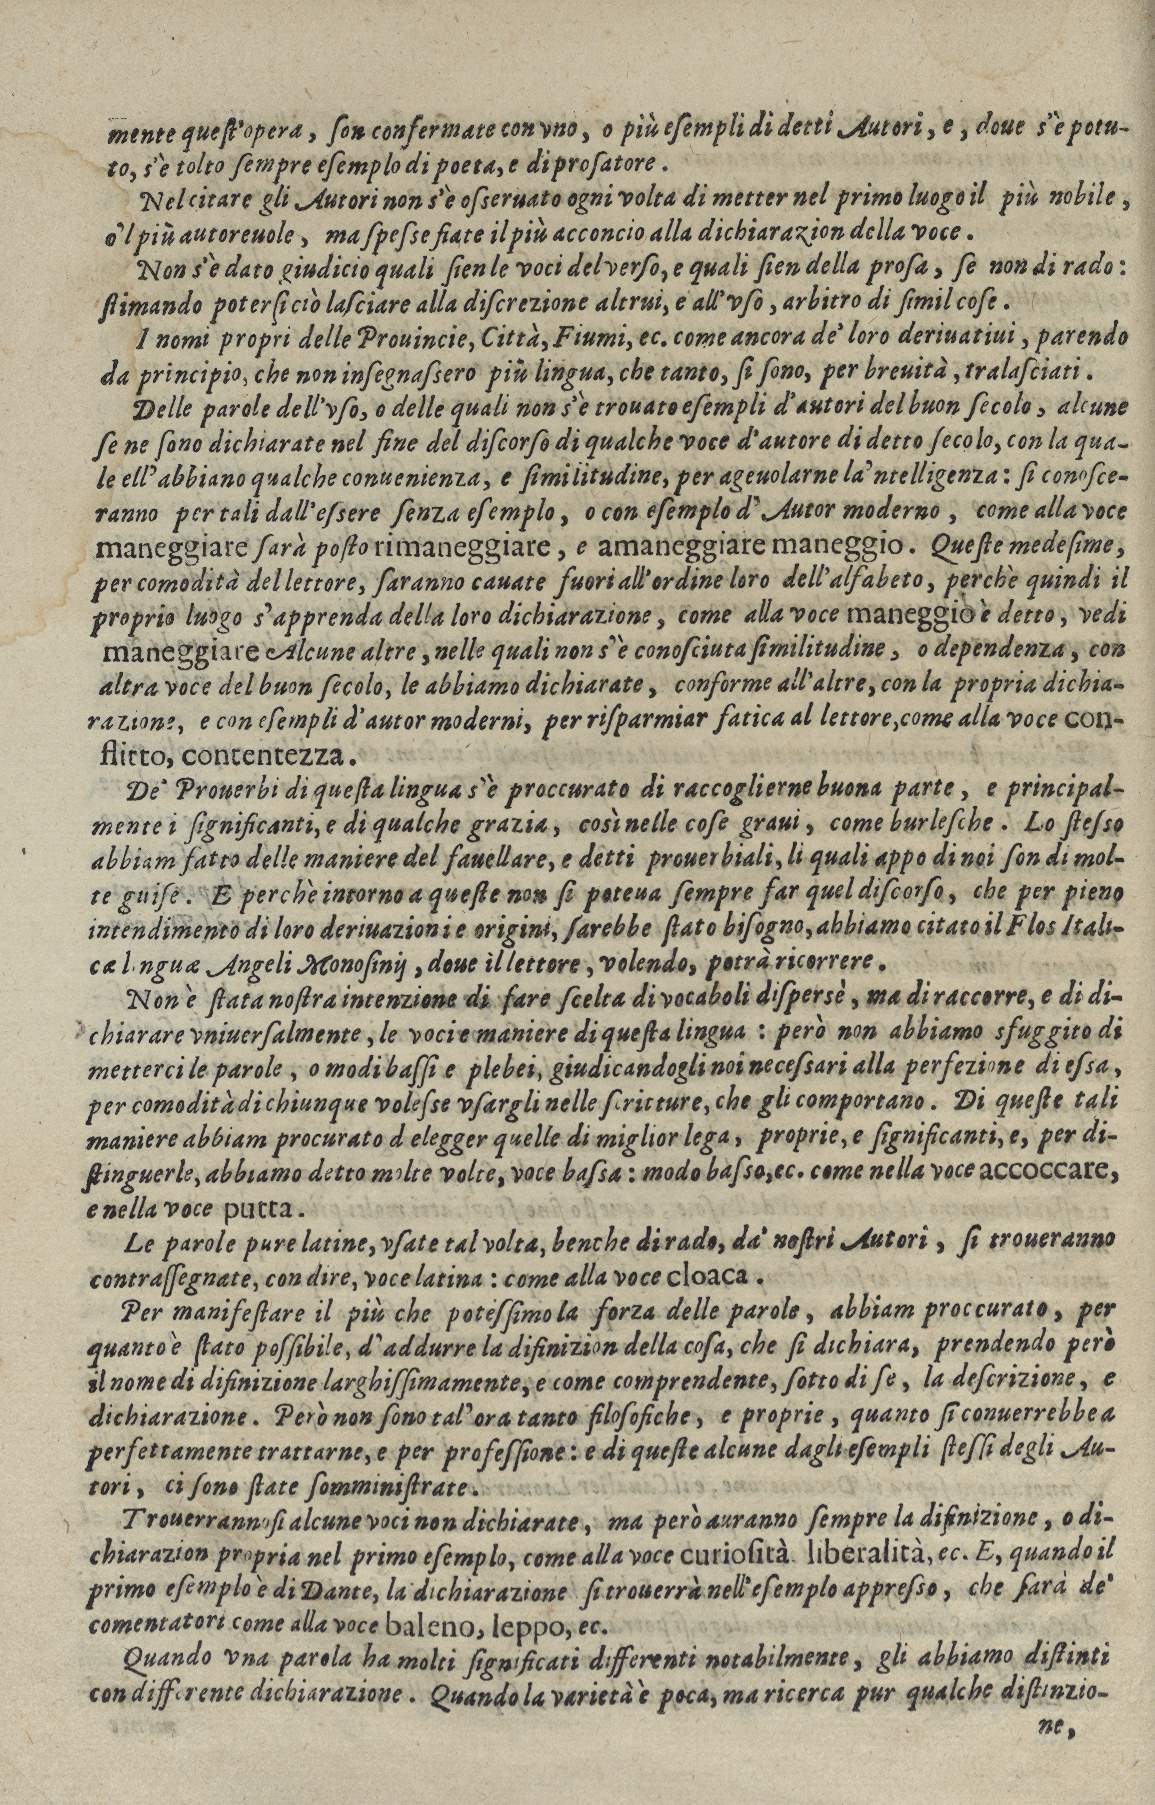 mente quest'opera, son confermate con vno, o più esempli di detti Autori, e, doue s'è potu-
to, s'è tolto sempre esemplo di poeta, e di prosatore.
Nel citare gli Autori non s'è osseruato ogni volta di metter nel primo luogo il più nobile,
o'l più autoreuole, ma spesse fiate il più acconcio alla dichiarazion della voce.
Non s'è dato giudicio quali sien le voci del verso, e quali sien della prosa, se non di rado:
stimando potersi ciò lasciare alla discrezione altrui, e all'vso, arbitro di simil cose.
I nomi propri delle Prouincie, Città, Fiumi, ec. come ancora de' loro deriuatiui, parendo
da principio, che non insegnassero più lingua, che tanto, si sono, per breuità, tralasciati.
Delle parole dell'vso, o delle quali non s'è trouato esempli d'autori del buon secolo, alcune
se ne sono dichiarate nel fine del discorso di qualche voce d'autore di detto secolo, con la qua-
le ell'abbiano qualche conuenienza, e similitudine, per ageuolarne la'ntelligenza: si conosce-
ranno per tali dall'essere senza esemplo, o con esemplo d'Autor moderno, come alla voce
maneggiare sarà posto rimaneggiare, e amaneggiare maneggio. Queste medesime,
per comodità del lettore, saranno cauate fuori all'ordine loro dell'alfabeto, perchè quindi il
proprio luogo s'apprenda della loro dichiarazione, come alla voce maneggiò è detto, vedi
maneggiare Alcune altre, nelle quali non s'è conosciuta similitudine, o dependenza, con
altra voce del buon secolo, le abbiamo dichiarate, conforme all'altre, con la propria dichia-
razione, e con esempli d'autor moderni, per risparmiar fatica al lettore, come alla voce con-
flitto, contentezza.
De' Prouerbi di questa lingua s'è proccurato di raccoglierne buona parte, e principal-
mente i significanti, e di qualche grazia, così nelle cose graui, come burlesche. Lo stesso
abbiam fatto delle maniere del fauellare, e detti prouerbiali, li quali appo di noi son di mol-
te guise. E perchè intorno a queste non si poteua sempre far quel discorso, che per pieno
intendimento di loro deriuazioni e origini, sarebbe stato bisogno, abbiamo citato il Flos Itali-
cæ linguæ Angeli Monosinij, doue il lettore, volendo, potrà ricorrere.
Non è stata nostra intenzione di fare scelta di vocaboli dispersè, ma di raccorre, e di di-
chiarare vniuersalmente, le voci e maniere di questa lingua: però non abbiamo sfuggito di
metterci le parole, o modi bassi e plebei, giudicandogli noi necessari alla perfezione di essa,
per comodità di chiunque volesse vsargli nelle scritture, che gli comportano. Di queste tali
maniere abbiam procurato d elegger quelle di miglior lega, proprie, e significanti, e, per di-
stinguerle, abbiamo detto molte volte, voce bassa: modo basso, ec. come nella voce accoccare,
e nella voce putta.
Le parole pure latine, vsate tal volta, benche di rado, da' nostri Autori, si troueranno
contrassegnate, con dire, voce latina: come alla voce cloaca.
Per manifestare il più che potessimo la forza delle parole, abbiam proccurato, per
quanto è stato possibile, d'addurre la difinizion della cosa, che si dichiara, prendendo però
il nome di difinizione larghissimamente, e come comprendente, sotto di se, la descrizione, e
dichiarazione. Però non sono tal'ora tanto filosofiche, e proprie, quanto si conuerrebbe a
perfettamente trattarne, e per professione: e di queste alcune dagli esempli stessi degli Au-
tori, ci sono state somministrate.
Trouerrannosi alcune voci non dichiarate, ma però auranno sempre la difinizione, o di-
chiarazion propria nel primo esemplo, come alla voce curiosità. liberalità, ec. E, quando il
primo esemplo è di Dante, la dichiarazione si trouerrà nell'esemplo appresso, che sarà de'
comentatori come alla voce baleno, leppo, ec.
Quando vna parola ha molti significati differenti notabilmente, gli abbiamo distinti
con differente dichiarazione. Quando la varietà è poca, ma ricerca pur qualche distinzio-
ne,